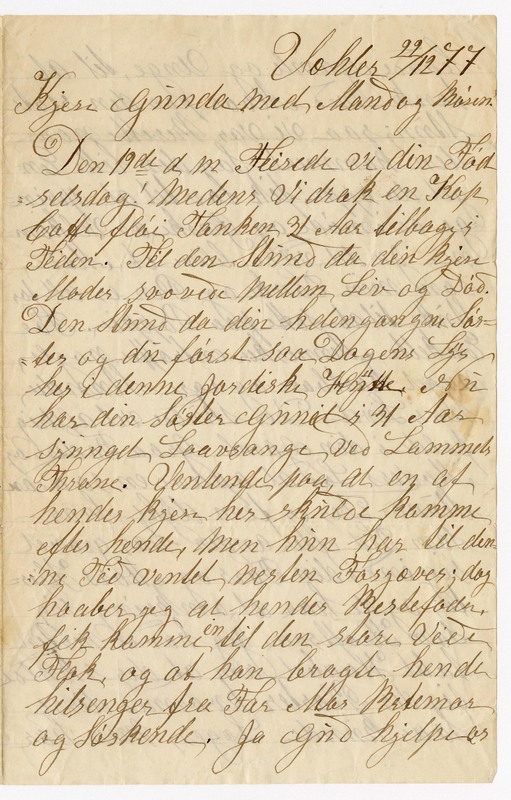 22/12 77
Kjere Gunda med Mand og Børen!
Den 19de d m Feirede vi din Fød
=selsdag! Medens Vi drak en Kop
Caffe fløi Tanken 31 Aar tilbage i
Tiden. Til den Stund da din kjere
Moder svovede mellem Liv og Død.
Den Stund da din hdengangne Søs=
=ter og du først saa Dagens Lys
her i denne Jordiske Hytte. Nu
har den Søster i 31 Aar
sjunget Lovsange ved Lammets
Throne. Ventende paa, at en af
hendes kjere her skulde komme
efter hende, Men hun har til den=
=ne Tid ventet nesten Forgjæves; dog
haaber jeg at hendes Bestefader,
fik komme ind til den store Vide
Flok, og at han bragte hende
hilsenger fra Far Mor Bestemor
og Søskende. Ja Gud hjelpe os